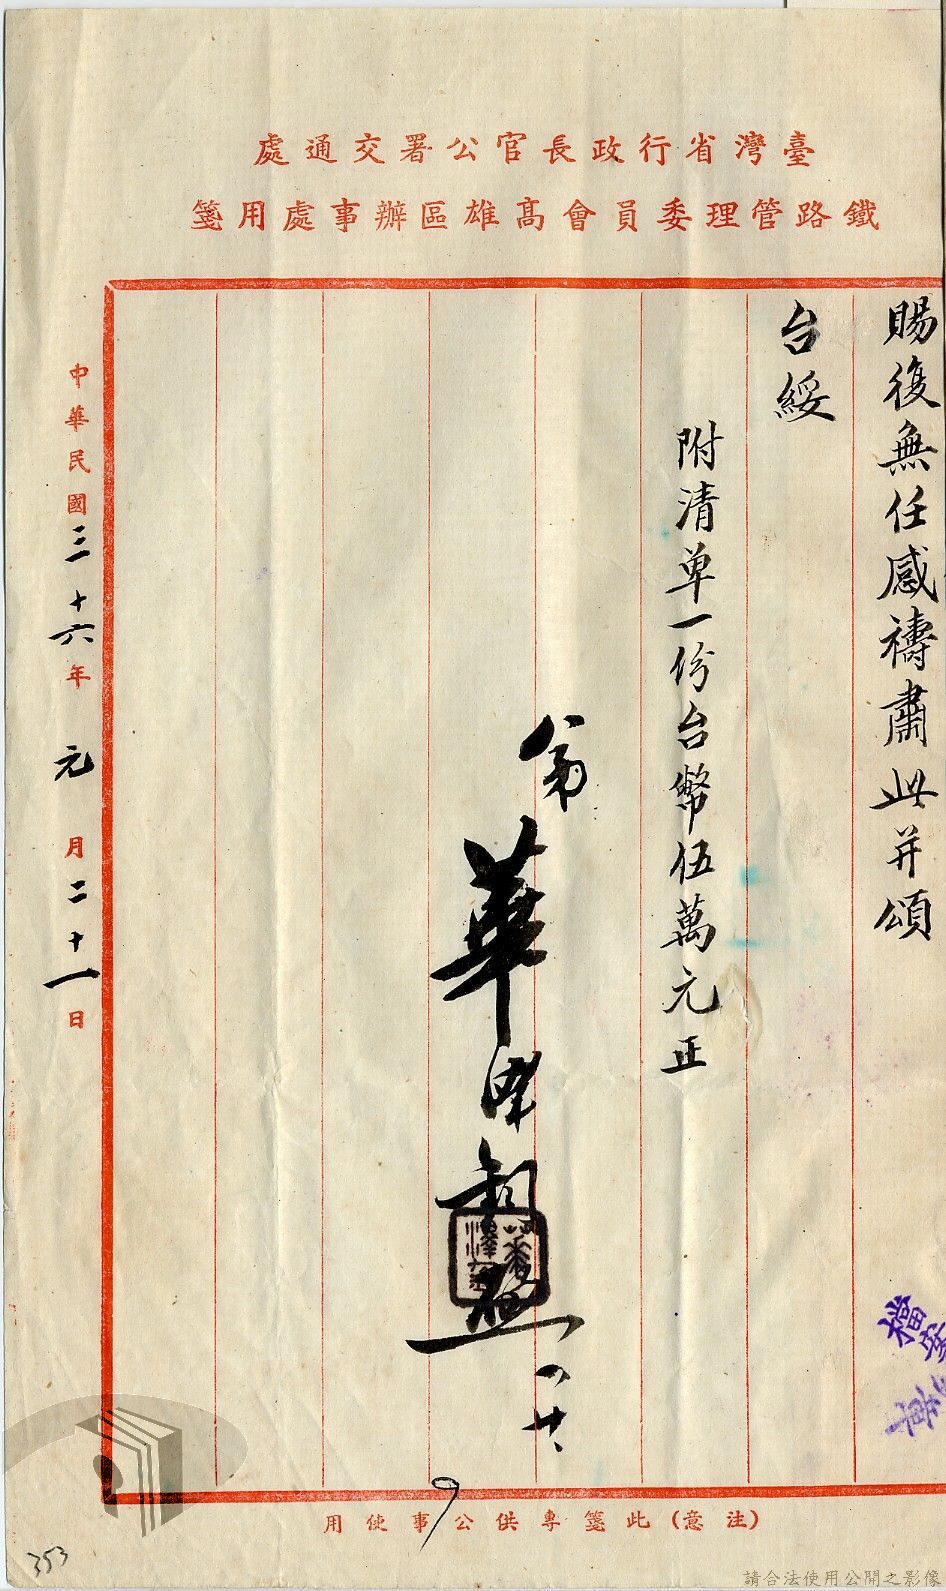 臺灣省行政長官公署交通處
鐵路管理委員會高雄區辦事處用箋
賜復無任感禱肅此并頌
台綏
附清單一份台幣伍萬元正
弟華澤鈞
一廿、
中華民國三十六年元月二十一日
(注意)此箋專供公事使用
檔案
353
請合法使用公開之影像